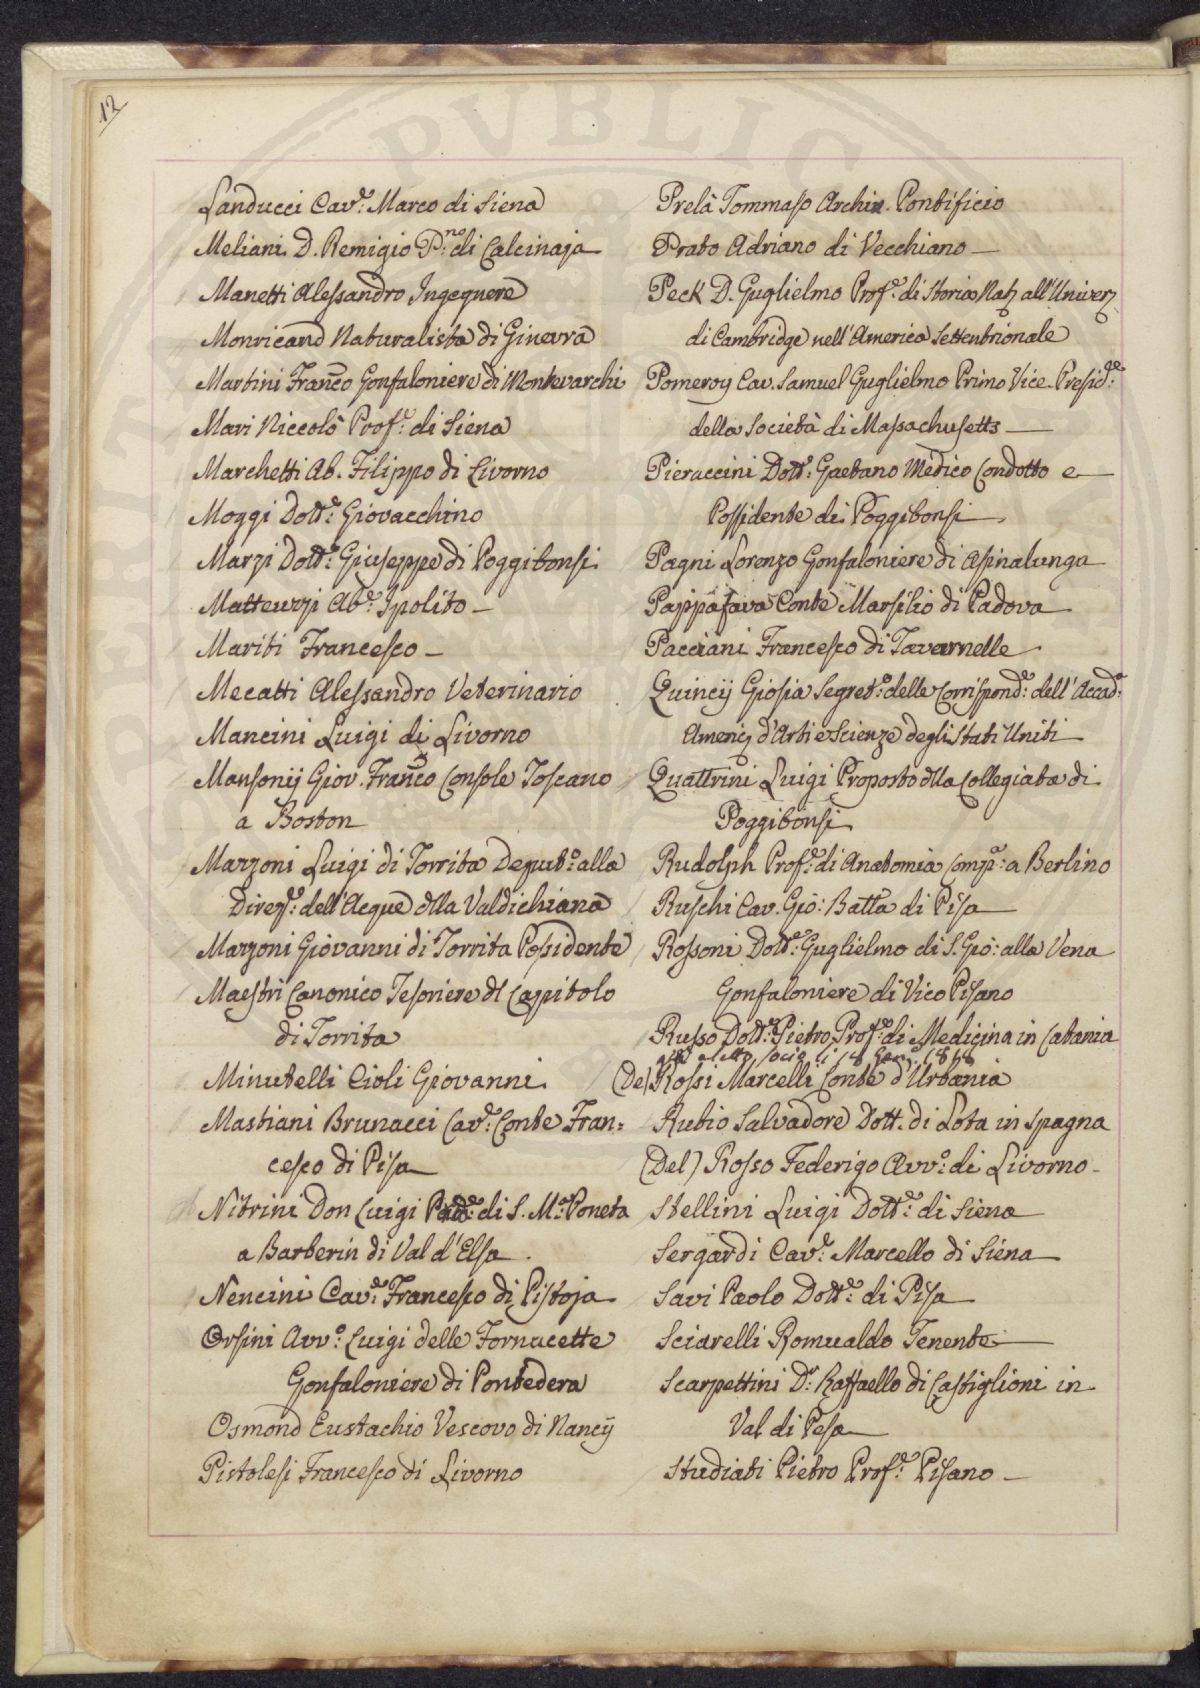 12
Landucci Cav.e Marco di Siena
Meliani D. Remigio P.no di Calcinaja
Manetti Alessandro Ingegnere
Monricand Naturalista di Ginevra
Martini Franco Gonfaloniere di Montevarchi
Mari Niccolò Prof.e di Siena
Marchetti Ab. Filippo di Livorno
Moggi Dott.e Giovacchino
Marzi Dott.e Giuseppe di Poggibonsi
Matteuzzi Ab.e Ipolito
Mariti Francesco
Mecatti Alessandro Veterinario
Mancini Luigi di Livorno
Mansonij Giov. Franco Console Toscano
a Boston
Mazzoni Luigi di Torrita Deput.o alla
Direz.e dell'Acque dlla Valdichiana
Mazzoni Giovanni di Torrita Possidente
Maestri Canonico Tesoriere dl Capitolo
di Torrita
Minutelli Cioli Giovanni
Mastiani Brunacci Cav.e Conte Fran=
cesco di Pisa
Nitrini Don Luigi di S. M.a Poneta
a Barberin di Val d'Elsa
Nencini Cav.e Francesco di Pistoja
Orsini Avv.o Luigi delle Fornacette
Gonfaloniere di Pontedera
Osmond Eustachio Vescovo di Nancÿ
Pistolesi Francesco di Livorno
Prelà Tommaso Archia. Pontificio
Prato Adriano di Vecchiano
Peck D. Guglielmo Prof.e di Storia Nat. all'Univer.
di Cambridge nell'America Settentrionale
Pomeroy Cav. Samuel Guglielmo Primo Vice-Presid.te
della Società di Massachusetts
Pieraccini Dott.e Gaetano Medico Condotto e
Possidente di Poggibonsi
Pagni Lorenzo Gonfaloniere di Asinalunga
Pappafava Conte Marsilio di Padova
Pacciani Francesco di Tavarnelle
Quincij Giosia Segret.o delle Corrispond.e dell'Accad.a
Americ. d'Arti e Scienze degli Stati Uniti
Quattrini Luigi Proposto dlla Collegiata di
Poggibonsi
Rudolph Prof.e di Anatomia Comp.a a Berlino
Ruschi Cav. Gio: Batta di Pisa
Rossoni Dott.e Guglielmo di S. Gio: alla Vena
Gonfaloniere di Vico Pisano
Russo Dott.e Pietro Prof.e di Medicina in Catania
eletto socio li 18 Gen.o
(De) Rossi Marcelli Conte d'Urbania
Rubio Salvadore Dott. di Lota in Spagna
(Del) Rosso Federigo Avv.o di Livorno
Stellini Luigi Dott.e di Siena
Sergardi Cav.e Marcello di Siena
Savi Paolo Dott.e di Pisa
Sciarelli Romualdo Tenente
Scarpettini D.r Raffaello di Castiglioni in
Val di Pesa
Studiati Pietro Prof.e Pisano
PVBLIC